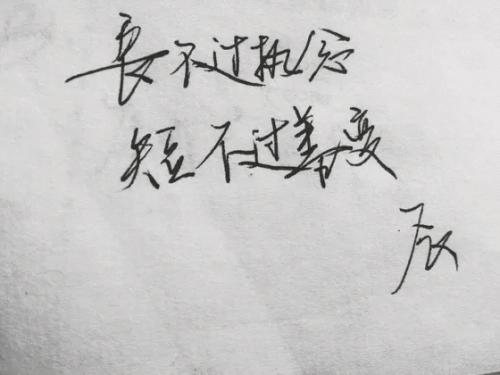 長不过执念
短不过善变